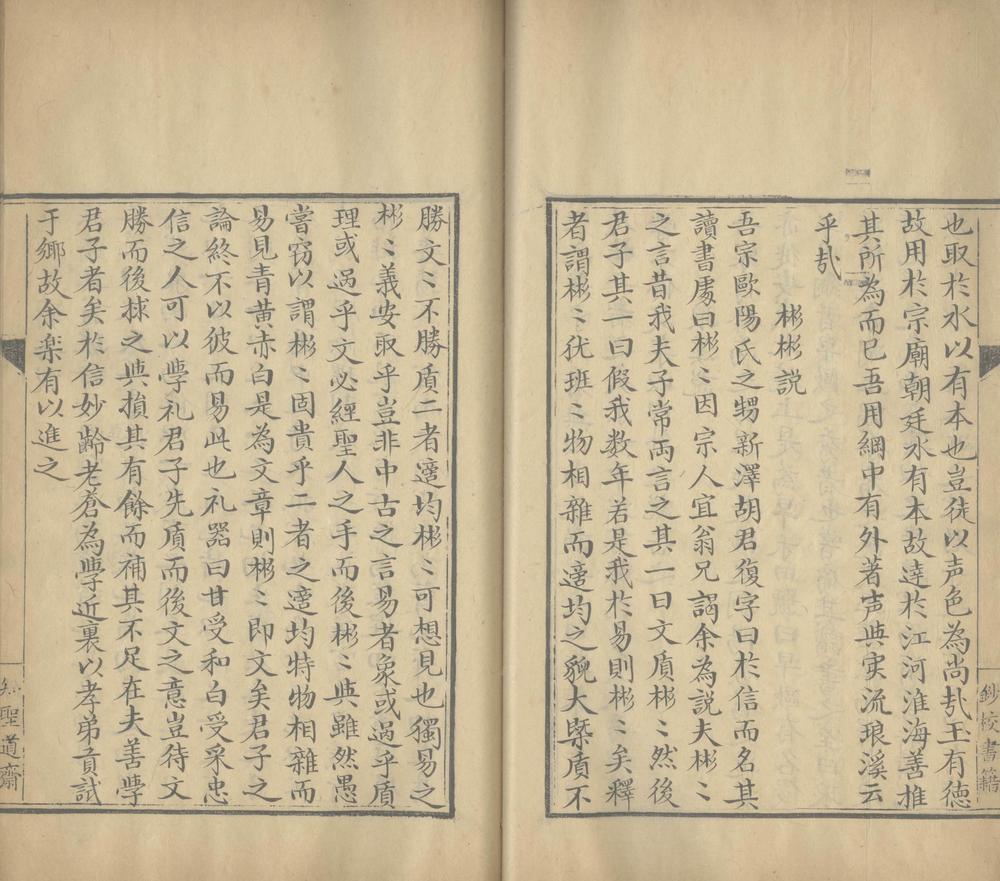 也取於水以有本也豈徒以声色為尚㢤玉有徳
故用於宗廟朝廷水有本故逹於江河淮海善推
其所為而已吾用綱中有外著声與实流琅溪云
乎㢤
彬彬説
吾宗歐陽氏之甥新澤胡君復字曰於信而名其
讀書處曰彬〻因宗人宜翁兄謁余為説夫彬〻
之言昔我夫子常两言之其一曰文質彬〻然後
君子其一曰假我数年若是我於易則彬〻矣釋
者謂彬〻犹班〻物相雜而適均之貌大槩质不
勝文〻不勝质二者適均彬〻可想見也獨易之
彬〻義安取乎豈非中古之言易者象或過乎质
理或過乎文必經聖人之手而後彬〻與雖然愚
嘗窃以謂彬〻固貴乎二者之適均特物相雜而
易見青黄赤白是為文章則彬〻即文矣君子之
論終不以彼而易此也礼器曰甘受和白受采忠
信之人可以學礼君子先质而後文之意豈待文
勝而後捄之與損其有餘而補其不足在夫善學
君子者矣於信妙齡老蒼為學近裏以孝弟貢試
于鄉故余楽有以進之
鈔校書籍
知聖道齋